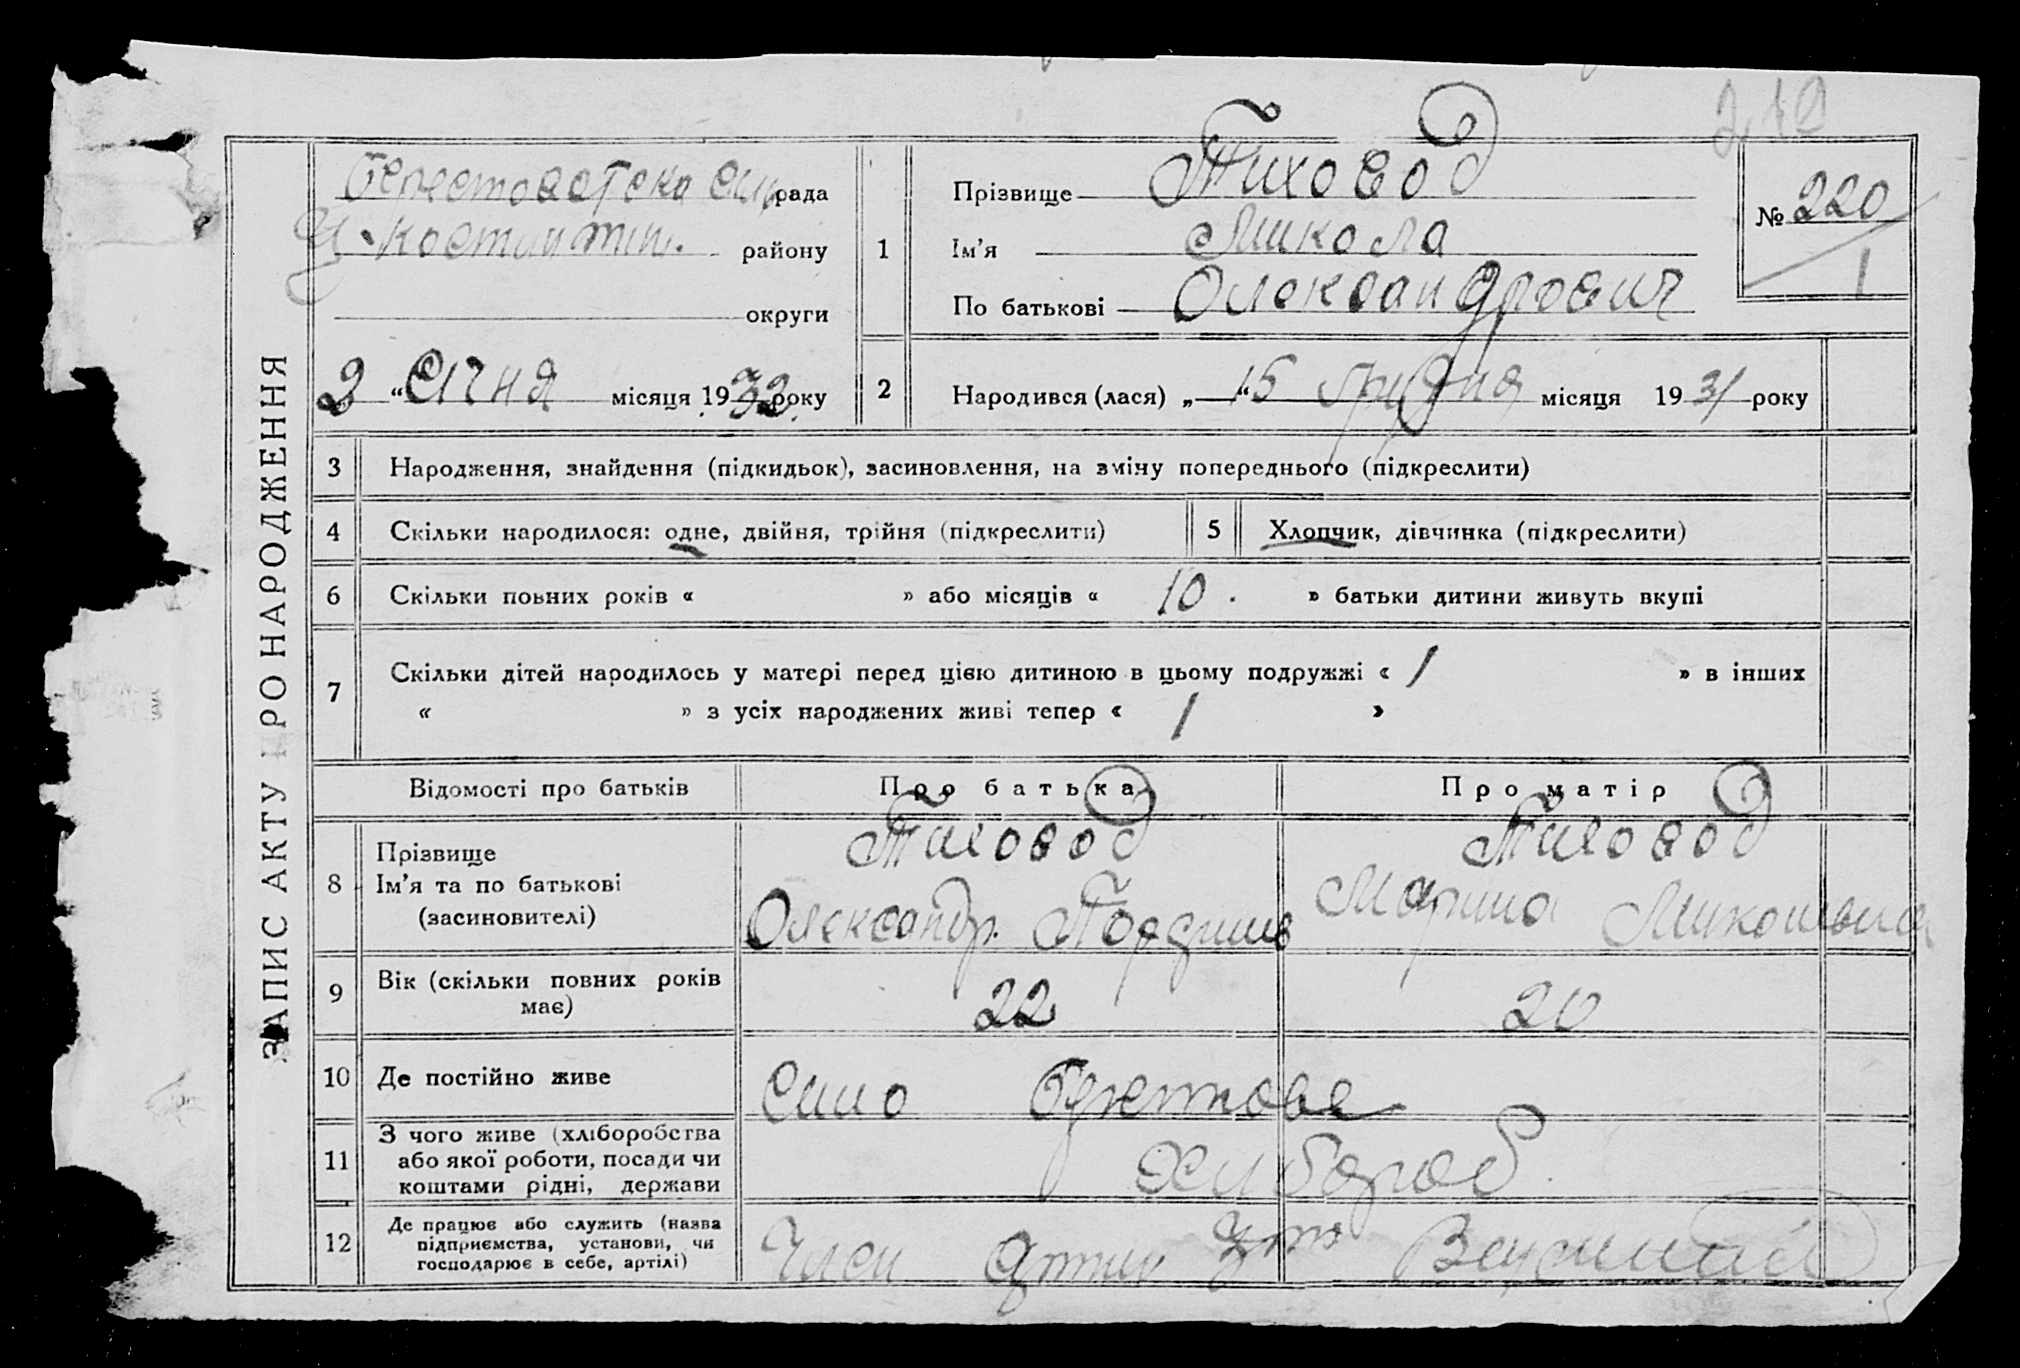 219
ЗАПИС АКТУ ПРО НАРОДЖЕННЯ
Берестоватська сіль рада
района
округи
2 " Січня місяця 1932 року
1
Прізвище Тиховод
Ім'я Микола
По батькові Олександрович
№ 220
1
2 Народився (лася) „ 15 " грудня місяця 1931 року
3 Народження, знайдення (підкидьок), засиновлення, на зміну попереднього (підкреслити)
4 Скільки народилося: одне, двійня, трійня (підкреслити) 5 Хлопчик, дівчинка (підкреслити)
6 Скільки повних років « » або місяців « 10 . » батьки дитини живуть вкупі
7 Скільки дітей народилось у матері перед цією дитиною в цьому подружжі « 1 » в інших
« » з усіх народжених живі тепер « 1 »
Відомості про батьків Про батька Про матір
8 Прізвище Тиховод Тиховод
Ім'я та по батькові
(засиновителі) Олександр. Марина
9 Вік (скільки повних років має) 22 20
10 Де постійно живе село
11 З чого живе (хліборобства
або якої роботи, посади чи
коштами рідні, держави Хлібороб
12 Де працює або служить (назва
підприємства, установи, чи
господарює в себе, артілі) Член артіли